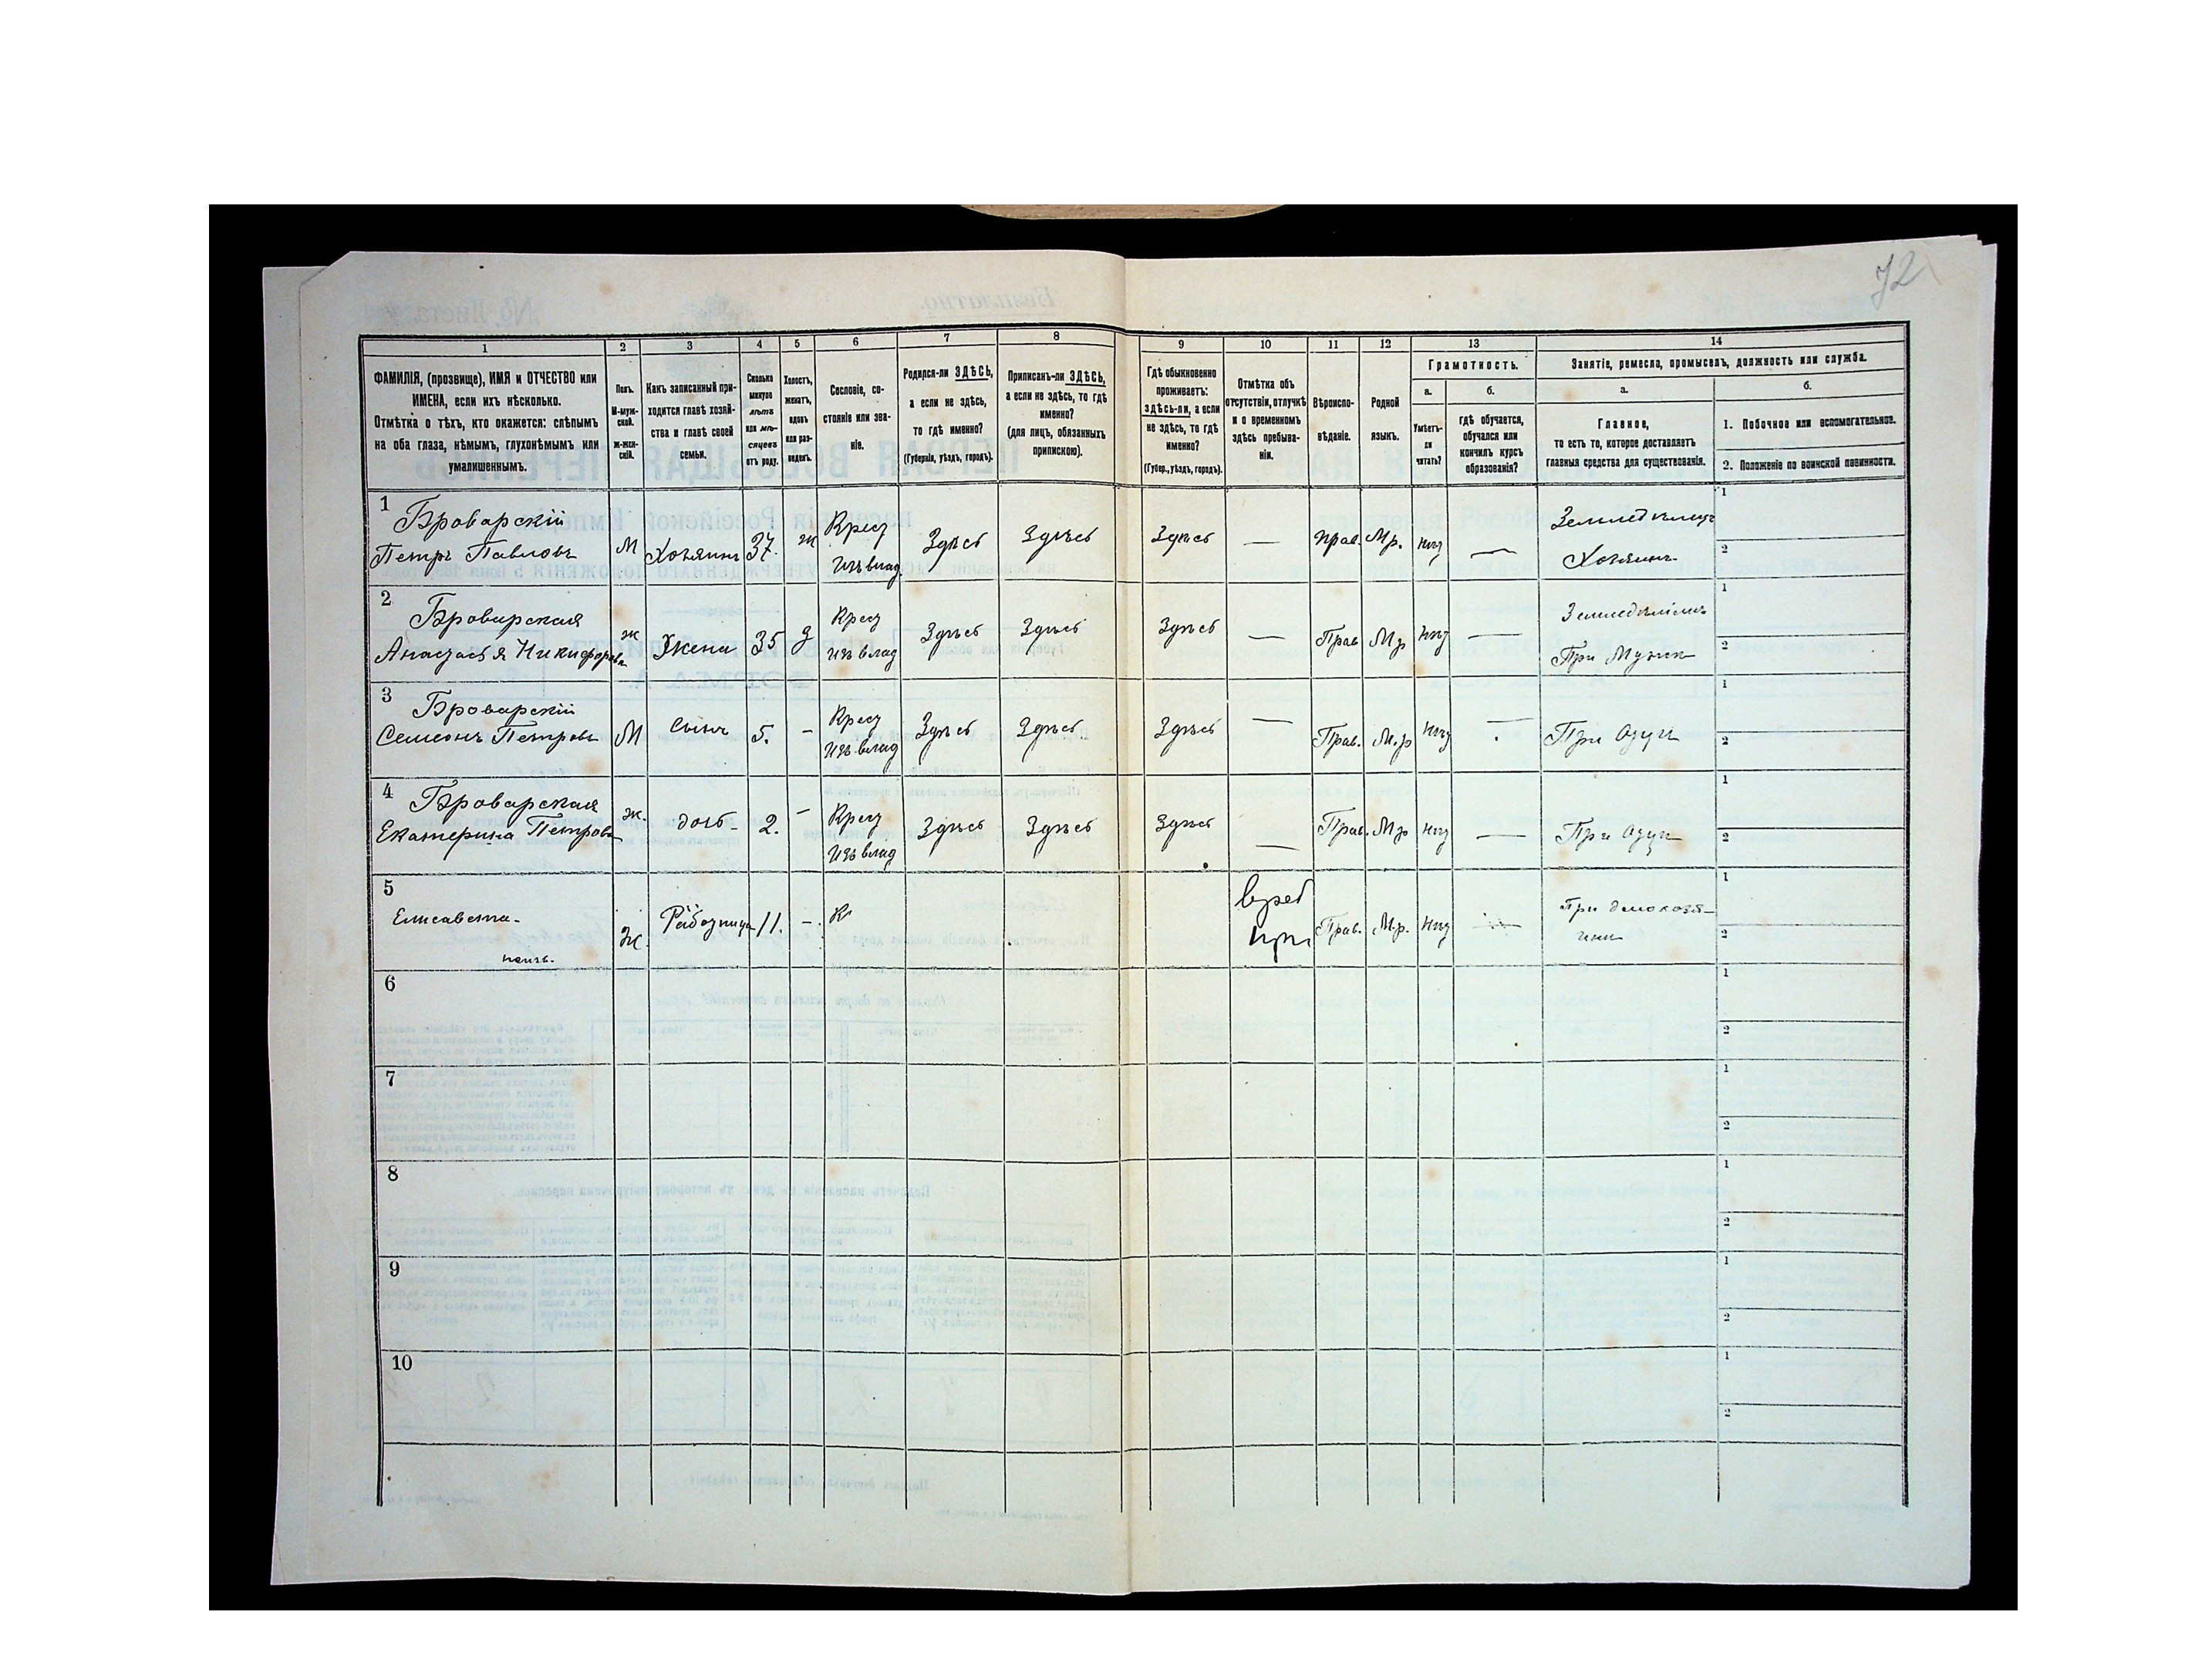 72
1 2 3 4 5 6 7 8 9 10 11 12 13 14
ФАМИЛІЯ, (прозвище), ИМЯ и ОТЧЕСТВО или
ИМЕНА, если ихъ нѣсколько.
Отмѣтка о тѣхъ, кто окажется: слѣпымъ
на оба глаза, нѣмымъ, глухонѣмымъ или
умалишеннымъ.
Полъ.
М-муж-
ской.
ж-жен-
скій.
Какъ записанный при-
ходится главѣ хозяй-
ства и главѣ своей
семьи.
Сколько
минуло
лѣтъ
или мѣ-
сяцевъ
отъ роду.
Холостъ,
женатъ,
вдовъ
или раз-
веденъ.
Сословіе, со-
стояніе или зва-
ніе.
Родился-ли ЗДѢСЬ,
а если не здѣсь,
то гдѣ именно?
(Губернія, уѣздъ, городъ).
Приписанъ-ли ЗДѢСЬ,
а если не здѣсь, то гдѣ
именно?
(для лицъ, обязанныхъ
припискою).
Гдѣ обыкновенно
проживаетъ:
здѣсь-ли, а если
не здѣсь, то гдѣ
именно?
(Губер., уѣздъ, городъ).
Отмѣтка объ
отсутствіи, отлучкѣ
и о временномъ
здѣсь пребыва-
ніи.
Вѣроиспо-
вѣданіе.
Родной
языкъ.
Грамотность.
а.
Умѣетъ-
ли
читать?
б.
гдѣ обучается,
обучался или
кончилъ курсъ
образованія?
Занятіе, ремесло, промыселъ, должность или служба.
а.
Главное,
то есть то, которое доставляетъ
главныя средства для существованія.
б.
1. Побочное или вспомогательное.
2. Положеніе по воинской повинности.
1 Броварскій
Петръ Павловъ
М Хозяинъ 37. ж
Крест
изъ влад.
Здѣсь Здѣсь Здѣсь — прав. Мр. нѣт —
Земледѣлецъ
Хозяинъ
1
2
2 Броварская
Анастасья Никифорова
ж Жена 35 з
Крест
изъ влад
Здѣсь Здѣсь Здѣсь — Прав Мр нѣт —
При Мужѣ
1
2
3 Броварскій
Семеонъ Петровъ
М Сынъ 5. -
Крест
изъ влад
Здѣсь Здѣсь Здѣсь — Прав. М.р нѣт —
При Отцѣ
1
2
4 Броварская
Екатерина Петрова
ж. дочь 2. -
Крест
изъ влад
Здѣсь Здѣсь Здѣсь — Прав. Мр нѣт —
При Отцѣ
1
2
5
Елисавета
ж. Работница 11. -
К
Прав. М.р. нѣт
1
2
6
1
2
7
1
2
8
1
2
9
1
2
10
1
2